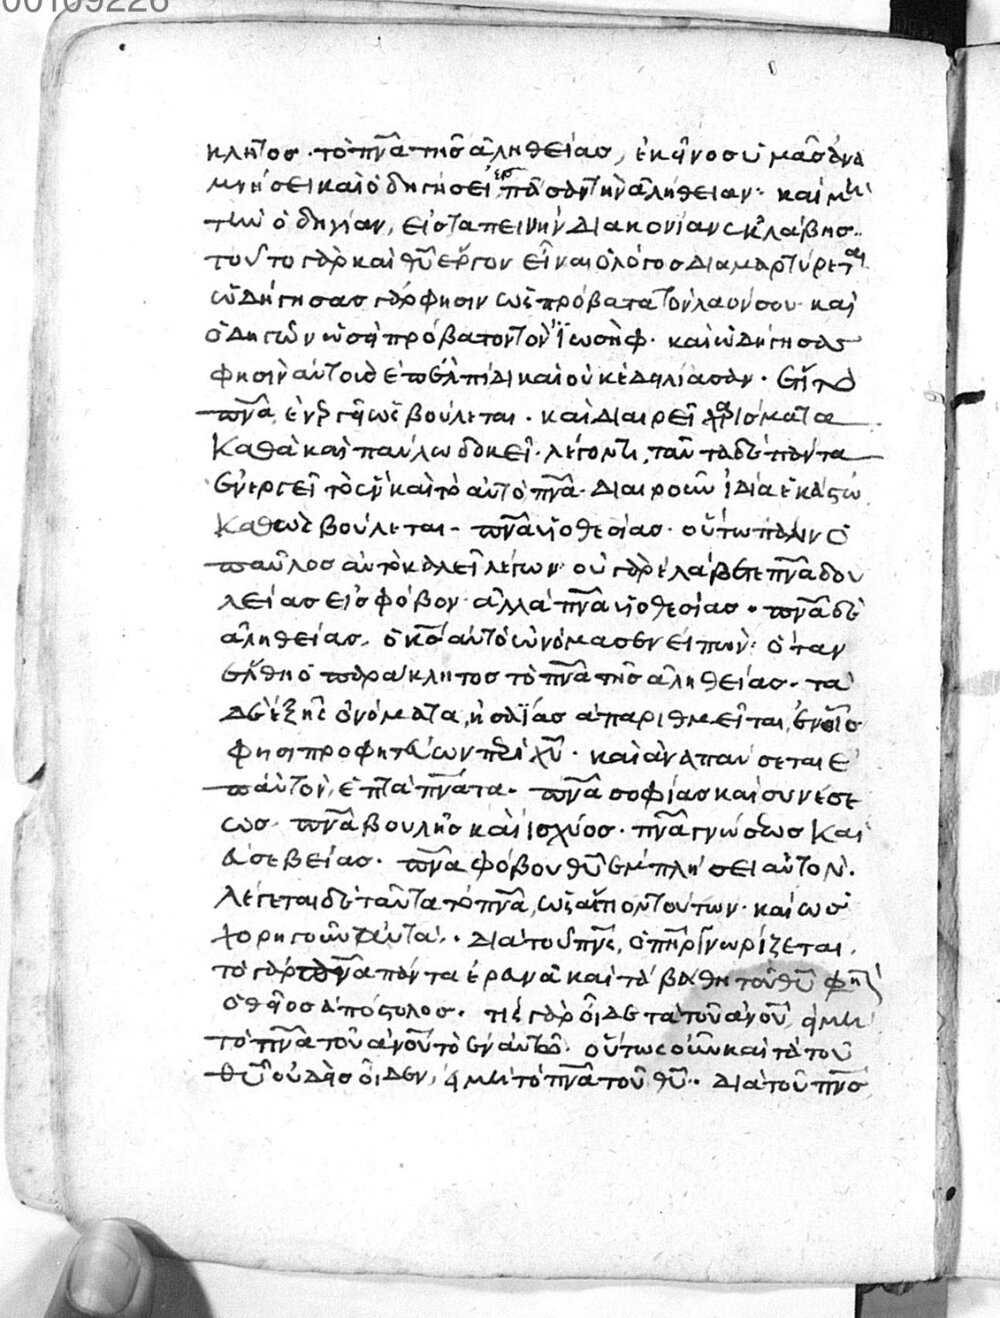 00109226
κλητος · το πν̅α της αληθείας, εκεινος ϋμας ανα
μνήσει και ὁδηγήσει εις πασαν την αλήθειαν · και μὴ
την ὁδηγίαν, εις ταπεινὴν διακονίαν εκλάβης ·
τουτο γαρ και θυ̅ ἔργον εἶναι ὁ λόγος διαμαρτύρεται
ὡδήγησας γάρ φησιν ὡς πρόβατα τον λαόν σου · και
ὁ δηγῶν ὡσεὶ πρόβατον τον Ϊωσήφ · και ὡδήγησας
φησιν αὐτους επ ελπίδι και οὐκ εδειλίασαν ·
πν̅α, ενεργει ὡς βούλεται · και διαιρεῖ χαρίσματα
Καθὰ και παύλω δοκεῖ · λέγοντι, ταῦτα δε πάντα
ενεργεῖ το ἓν και το αυτο πν̅α · διαιροῦν ϊδία εκάστω
Καθως βούλεται - πν̅α υιοθεσίας · οὕτω πάλιν ὁ
παῦλος αυτο καλεῖ λέγων · ου γαρ ελάβετε πν̅α δου
λείας εις φόβον · αλλα πν̅α υιοθεσίας · πν̅α δε
αληθείας, ὁ κς̅ αυτο ὠνόμασεν ειπών · ὅταν
έλθη ὁ παράκλητος το πν̅α της αληθείας · τα
δε ἑξῆς ονόματα, ησαΐας απαριθμεῖται, εν οις
φησι προφητεύων περι χυ̅ · και αναπαύσεται ε
π αυτον, επτα πν̅ατα · πν̅α σοφίας και συνέσε
ως · πν̅α βουλης και ισχύος · πν̅α γνώσεως Και
ευσεβείας · πν̅α φόβου θυ̅ εμπλήσει αυτον ·
Λέγεται δε ταῦτα το πν̅α, ὡς αίτιον τούτων · και ως
χορηγουν ταυτα · δια του πν̅ς, ὁ πη̅ρ γνωρίζεται ·
το γαρ πν̅α πάντα ερευνᾶ και τα βάθη τοῦ θυ̅ φησι
ὁ θεῖος απόστολος · τις γαρ οἶδε τα τοῦ αν̅ου, ει μη
το πν̅α τοῦ αν̅ου το εν αυτῶ · οὕτως οὖν και τα τοῦ
θυ̅ ουδεὶς οἶδεν, ει μη το πν̅α τοῦ θυ̅ · δια τοῦ πν̅ς